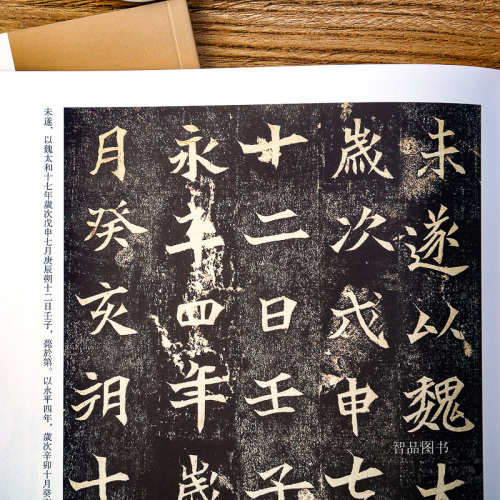 未遂以魏太
歲次戊申七
十二日壬子
永平四年歲
月癸亥朔十
未遂，以魏太和十七年歲次戊申七月庚辰朔十二日壬子，薨於第。以永平四年，歲次辛卯十月癸
智品图书